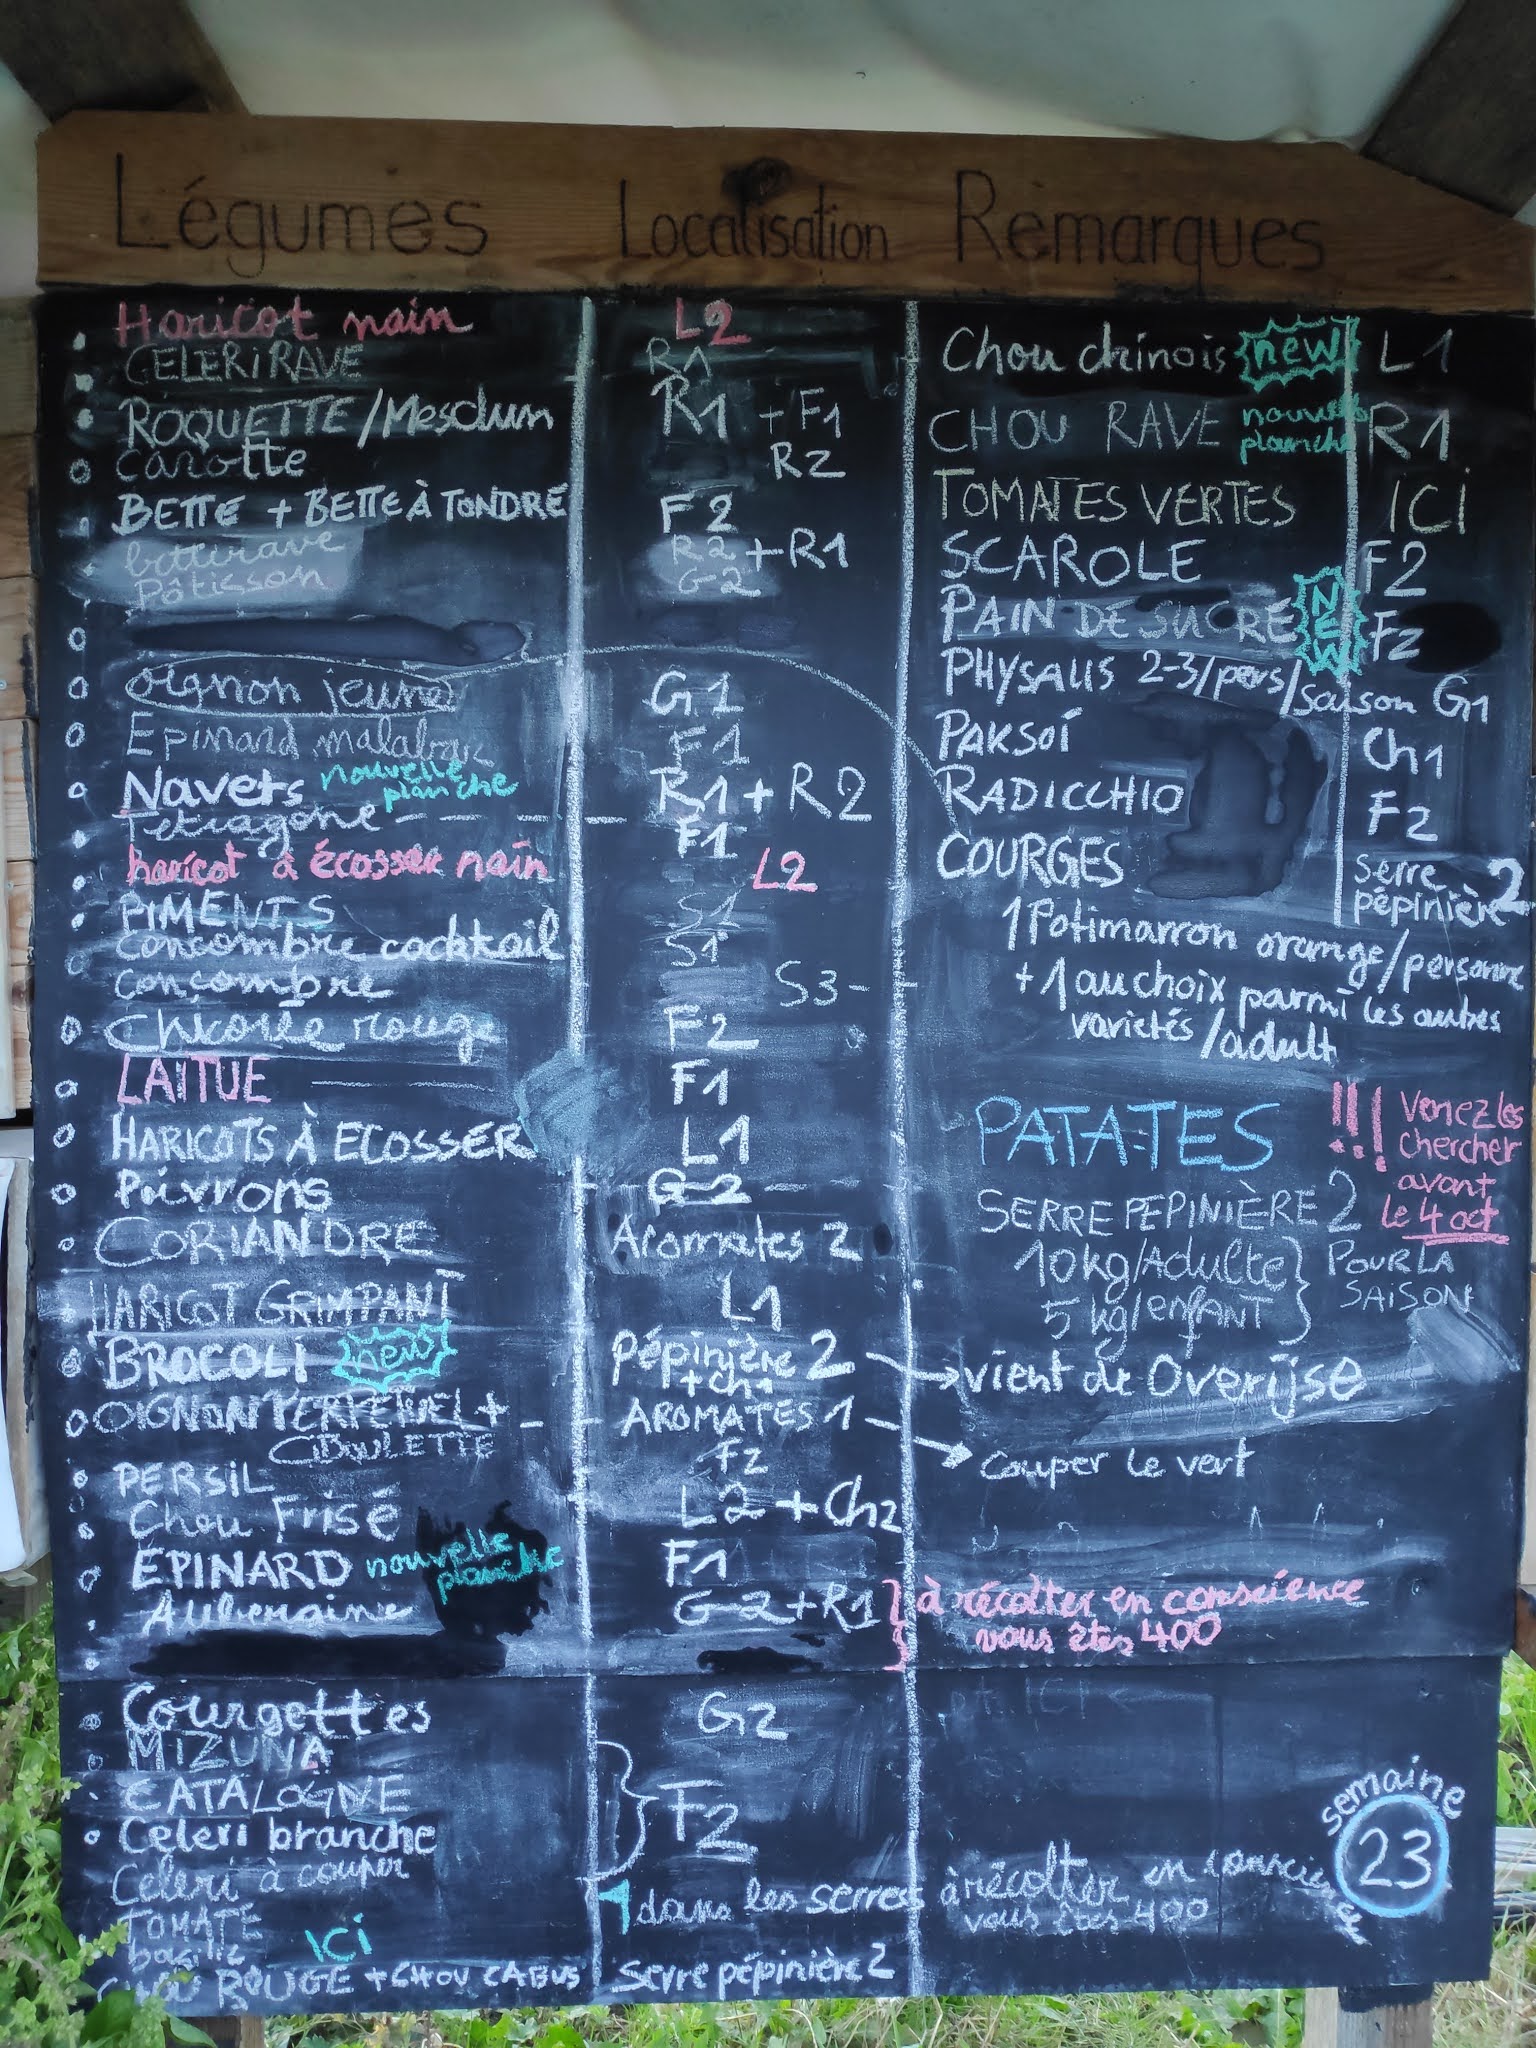 Légumes Localisation Remarques
Haricot nain L2
CELERI RAVE R1
ROQUETTE / Mesclum R1 + F1
carotte R2
BETTE + BETTE À TONDRE F2
betterave R2 + R1
Pâtisson G2
oignon jeune G1
Epinard malabar F1
Navets nouvelle planche R1 + R2
Tetragone - - - F1
haricot à écosser nain L2
PIMENTS S1
concombre cocktail S1
concombre S3 -
Chicorée rouge F2
LAITUE F1
HARICOTS À ECOSSER L1
Poivrons G2
CORIANDRE Aromates 2
HARICOT GRIMPANT L1
BROCOLI new Pépinière 2
+ Ch1
OIGNON PERPETUEL + AROMATES 1
CIBOULETTE
PERSIL F2
Chou Frisé L2 + Ch2
EPINARD nouvelle planche F1
Aubergine G2 + R1
Courgettes G2
MIZUNA
CATALOGNE F2
Celeri branche
Celeri à couper
TOMATE dans les serres
basilic ICI
CHOU ROUGE + CHOU CABUS Serre pépinière 2
Chou chinois new L1
CHOU RAVE nouvelle planche R1
TOMATES VERTES ICI
SCAROLE F2
PAIN DE SUCRE NEW F2
PHYSALIS 2-3/pers/saison G1
PAKSOÏ Ch1
RADICCHIO F2
COURGES Serre pépinière 2
1 Potimarron orange/personne
+ 1 au choix parmi les autres
variétés/adult
PATATES !!! Venez les
chercher
avant
le 4 oct
SERRE PEPINIÈRE 2
10kg/Adulte } POUR LA
5 kg/enfant } SAISON
→ vient de Overijse
→ couper le vert
à récolter en conscience
vous êtes 400
à récolter en conscience
vous êtes 400
semaine
23